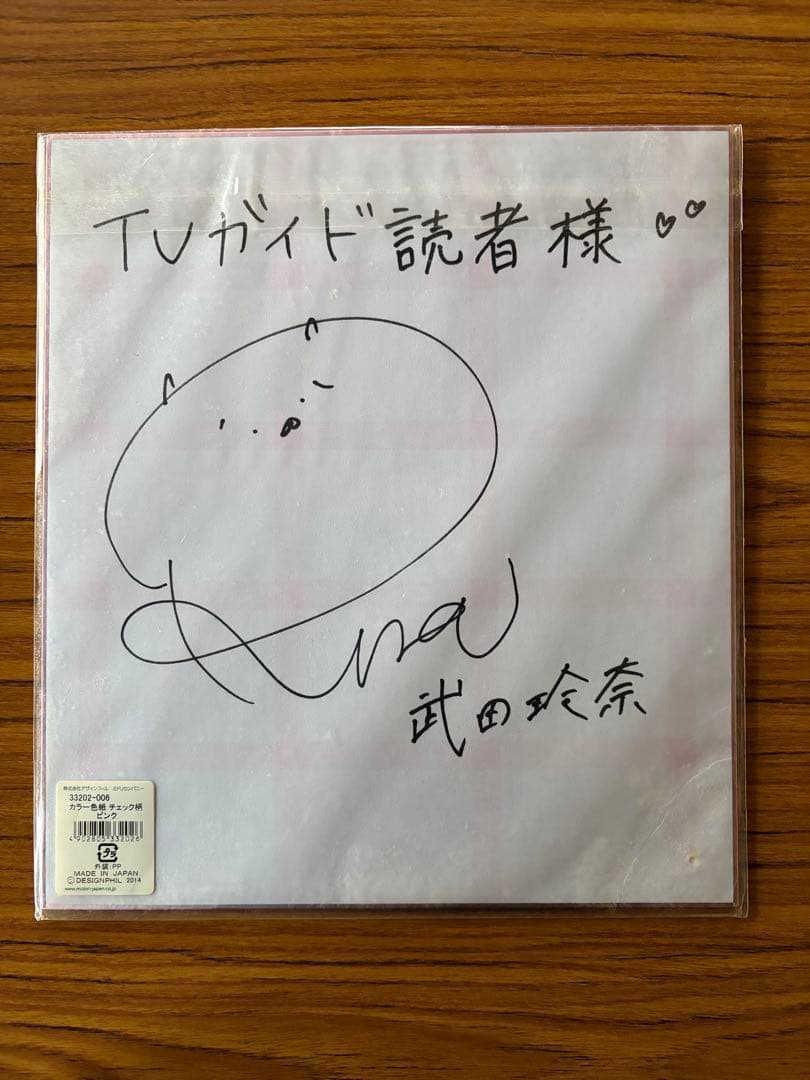 TVガイド読者様♡♡
Rena
武田玲奈
株式会社デザインフィル ミドリカンパニー
33202-006
カラー色紙 チェック柄
ピンク
4902805332026
外装:PP
MADE IN JAPAN
©DESIGNPHIL 2014
www.midori-japan.co.jp